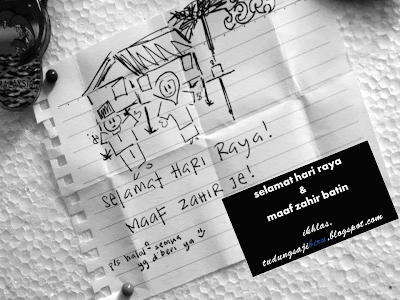 selamat Hari Raya!
MAAF ZAHIR Je!
p/s halal semua
yg d beri ya
selamat hari raya
&
maaf zahir batin
ikhlas,
tudungsajibiru.blogspot.com